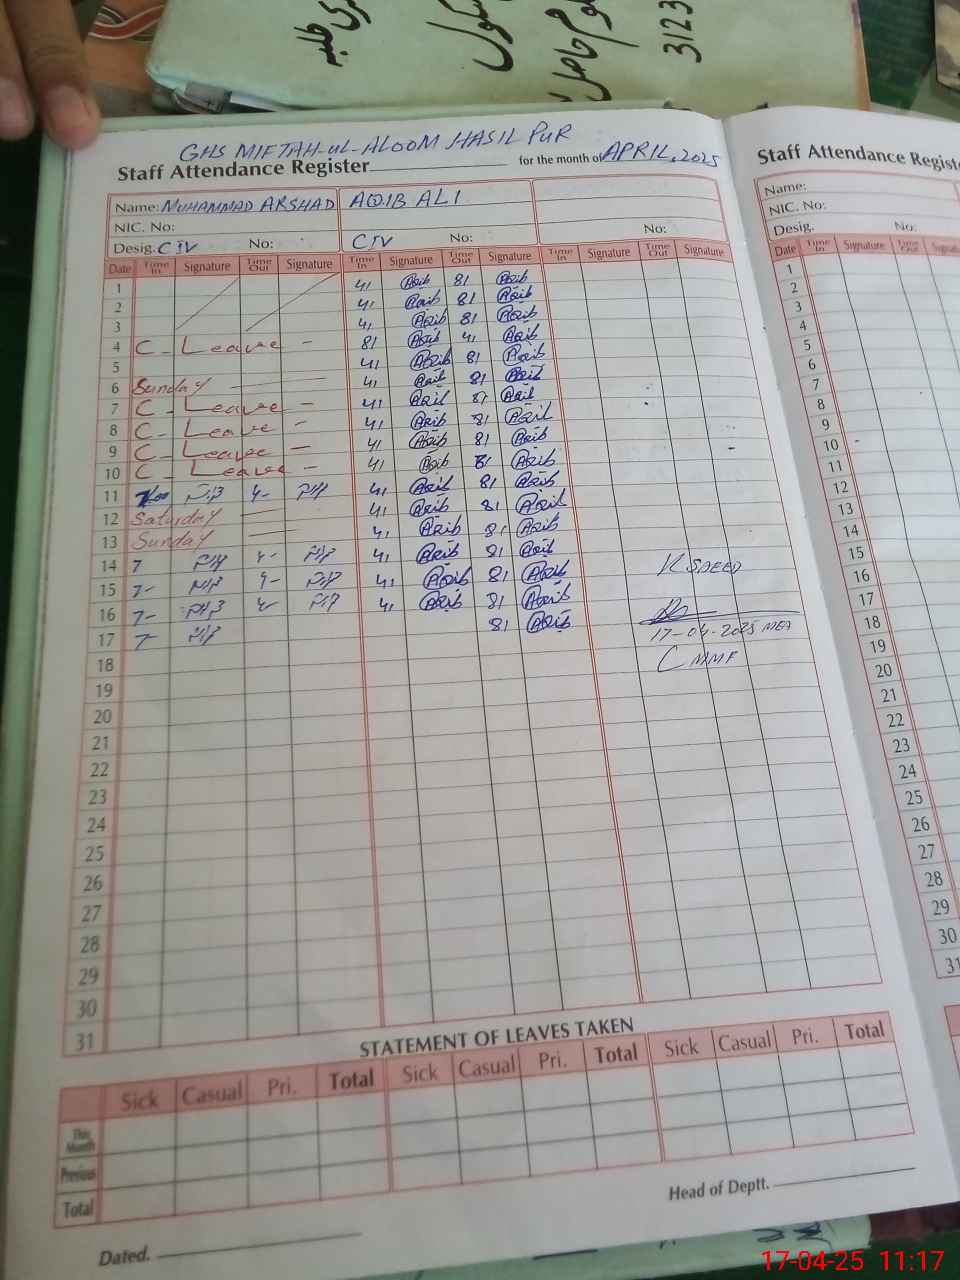 طلبہ
سکول
3123
GHS MIFTAH-UL-ALOOM HASIL PUR
Staff Attendance Register for the month of APRIL, 2025
Name: MUHAMMAD ARSHAD AQIB ALI
NIC. No:
Desig. CIV No: CIV No: No:
Date Time In Signature Time Out Signature Time In Signature Time Out Signature Time In Signature Time Out Signature
1 41 Aqib 81 Aqib
2 41 Aqib 81 Aqib
3 41 Aqib 81 Aqib
4 C - Leave - 81 Aqib 41 Aqib
5 41 Aqib 81 Aqib
6 Sunday 41 Aqib 81 Aqib
7 C - Leave - 41 Aqib 81 Aqib
8 C - Leave - 41 Aqib 81 Aqib
9 C - Leave - 41 Aqib 81 Aqib
10 C Leave - 41 Aqib 81 Aqib
11 41 Aqib 81 Aqib
12 Saturday 41 Aqib 81 Aqib
13 Sunday 41 Aqib 81 Aqib
14 7 41 Aqib 81 Aqib
15 7- 41 Aqib 81 Aqib
16 7- 41 Aqib 81 Aqib
17 7- 81 Aqib
K SAEED
17-04-2025 MEA
C MMF
18
19
20
21
22
23
24
25
26
27
28
29
30
31
STATEMENT OF LEAVES TAKEN
Sick Casual Pri. Total Sick Casual Pri. Total Sick Casual Pri. Total
This Month
Previous
Total
Dated. Head of Deptt.
Staff Attendance Regist
Name:
NIC. No:
Desig. No:
Date Time In Signature Time Out
1
2
3
4
5
6
7
8
9
10
11
12
13
14
15
16
17
18
19
20
21
22
23
24
25
26
27
28
29
30
31
17-04-25 11:17